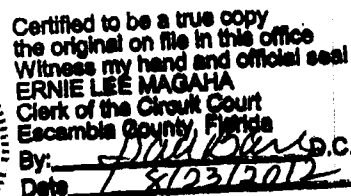 Certified to be a true copy
the original on file in this office
Witness my hand and official seal
ERNIE LEE MAGAHA
Clerk of the Circuit Court
Escambia County, Florida
By: D.C.
Date 8/23/2012